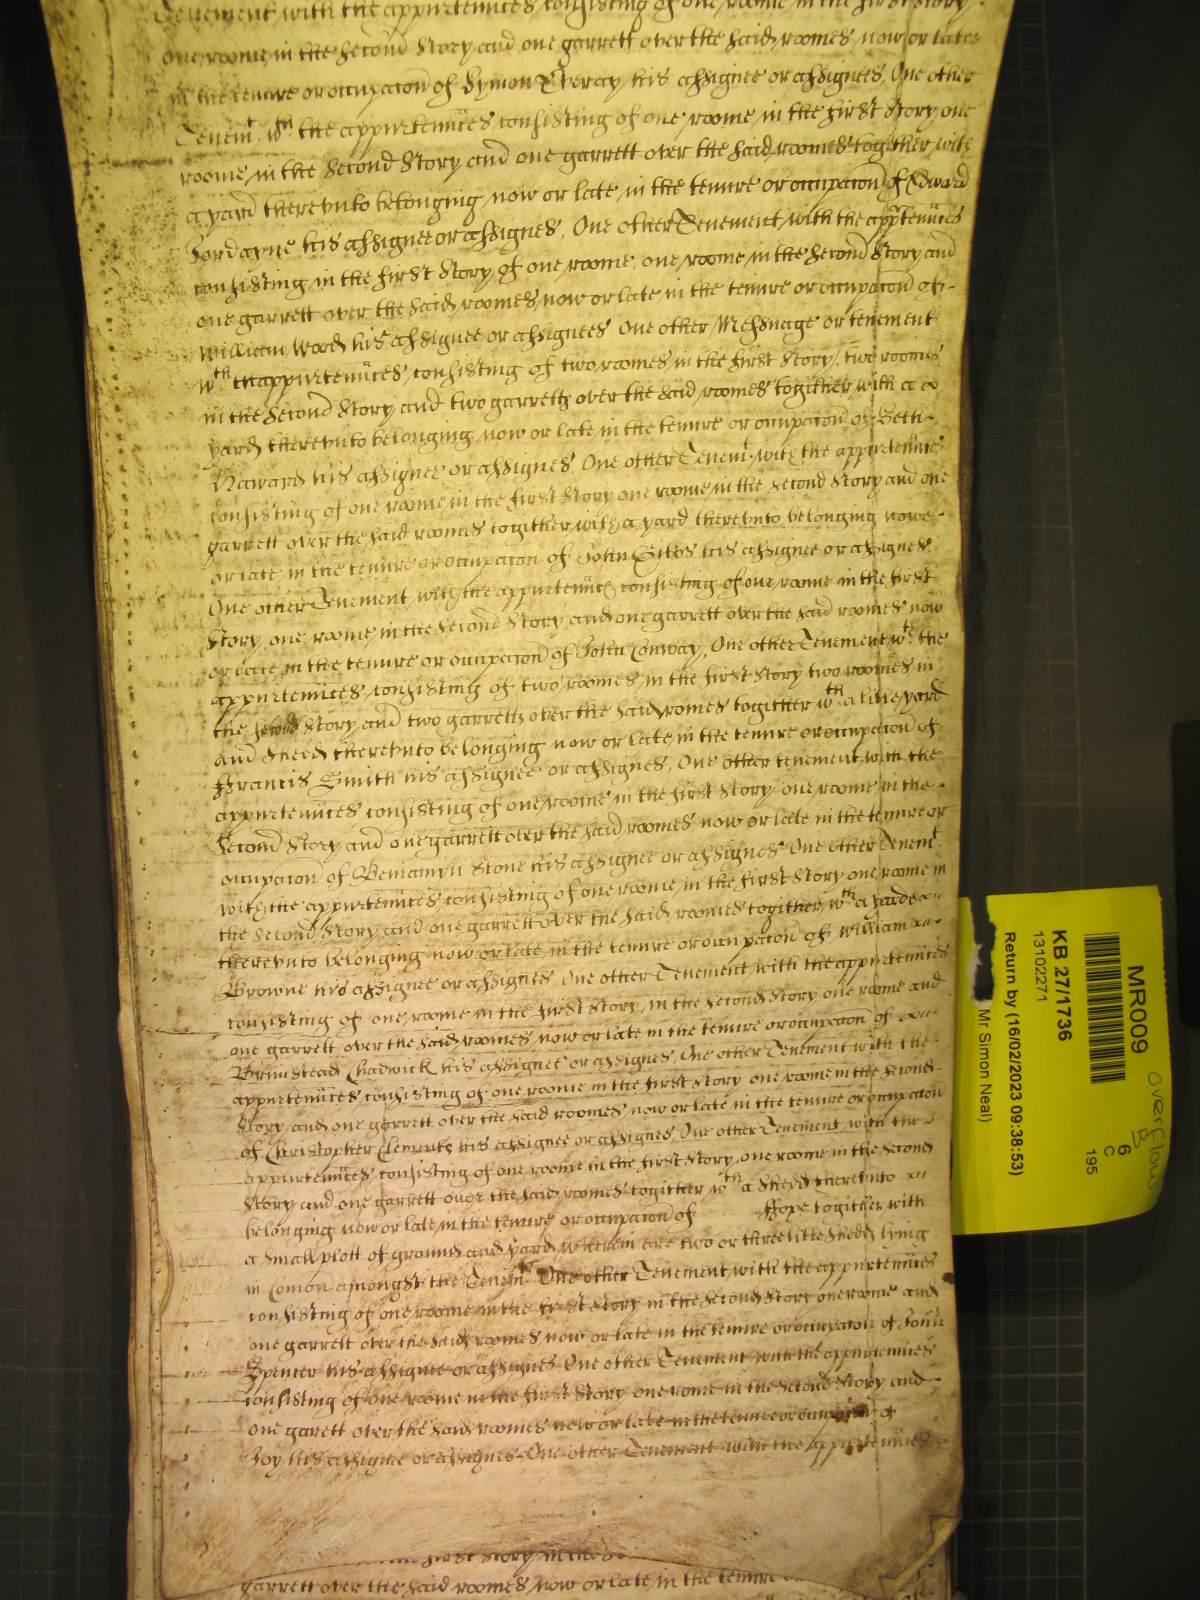 Tenement with the appurtenñces consisting of one roome in the first story
one roome in the second story and one garrett over the said roomes now or late
in the tenure or occupacon of Symon his assignee or assignes. One other
Tenemt. wth the appurtenñces consisting of one roome in the first story one
roome in the second story and one garrett over the said roomes together with
a yard therevnto belonging now or late in the tenure or occupacon of Edward
Jordayne his assignee or assignes. One other Tenement with the apptenñces
consisting in the first story of one roome, one roome in the second story and
one garrett over the said roomes now or late in the tenure or occupacon of
William Wood his assignee or assignees One other Messuage or tenement
wth thappurtenñces consisting of two roomes in the first story, two roomes
in the second story and two garretts over the said roomes togither with a
yard therevnto belonging now or late in the tenure or occupacon of
Haward his assignee or assignes. One other Tenemt. with the appurtenñces
consisting of one roome in the first story one roome in the second story and one
garrett over the said roomes togither with a yard therevnto belonging nowe
or late in the tenure or occupacon of John his assignee or assignes
One other Tenement with the appurtenñcs consisting of one roome in the first
story, one roome in the second story and one garrett over the said roomes now
or late in the tenure or occupacon of John Conway, One other Tenement wth. the
appurtenñces consisting of two roomes in the first story two roomes in
the second story and two garretts over the said romes togither wth a litle yard
and shedd therevnto belonging now or late in the tenure or occupacon of
Francis Smith his assignee or assignes. One other tenement with the
appurtenñces consisting of one roome in the first story one roome in the
second story and one garrett over the said roomes now or late in the tenure or
occupacon of Beniamyn Stone his assignee or assignes One other Tenemt.
with the appurtenñces consisting of one roome in the first story one roome in
the second story and one garrett over the said roomes togither wth a yarde
therevnto belonging now or late in the tenure or occupacon of William
Browne his assignee or assignes One other Tenement with the appurtenñces
consisting of one roome in the first story, in the second story one roome and
one garrett over the said roomes now or late in the tenure or occupacon of
Brimstead Chadwick his assignee or assignes. One other Tenement with the
appurtenñces consisting of one roome in the first story one roome in the second
story and one garrett over the said roomes now or late in the tenure or occupacon
of Christopher Clements his assignee or assignes One other Tenement with the
appurtenñces consisting of one roome in the first story one roome in the second
story and one garrett over the said roomes togither wth a shedd therevnto
belonging now or late in the tenure or occupacon of Hope togither with
a small plott of ground and yard wherein are two or three litle shedds lying
in Comon amongst the Tenemts. One other Tenement with the appurtenñces
consisting of one roome in the first story in the second story one roome and
one garrett over the said roomes now or late in the tenure or occupacon of John
Spencer his assignee or assignes One other Tenement with the appurtenñces
consisting of one roome in the first story one rome in the second story and
one garett over the said roomes now or late in the tenure or occupacon of
Joy his assignee or assignes One other Tenement with the appurtenñces
first story in the
garrett over the said roomes now or late in the tenure
MR009
KB 27/1736
13102271
Return by (16/02/2023 09:38:53)
Mr Simon Neal)
6
C
195
overflow
B